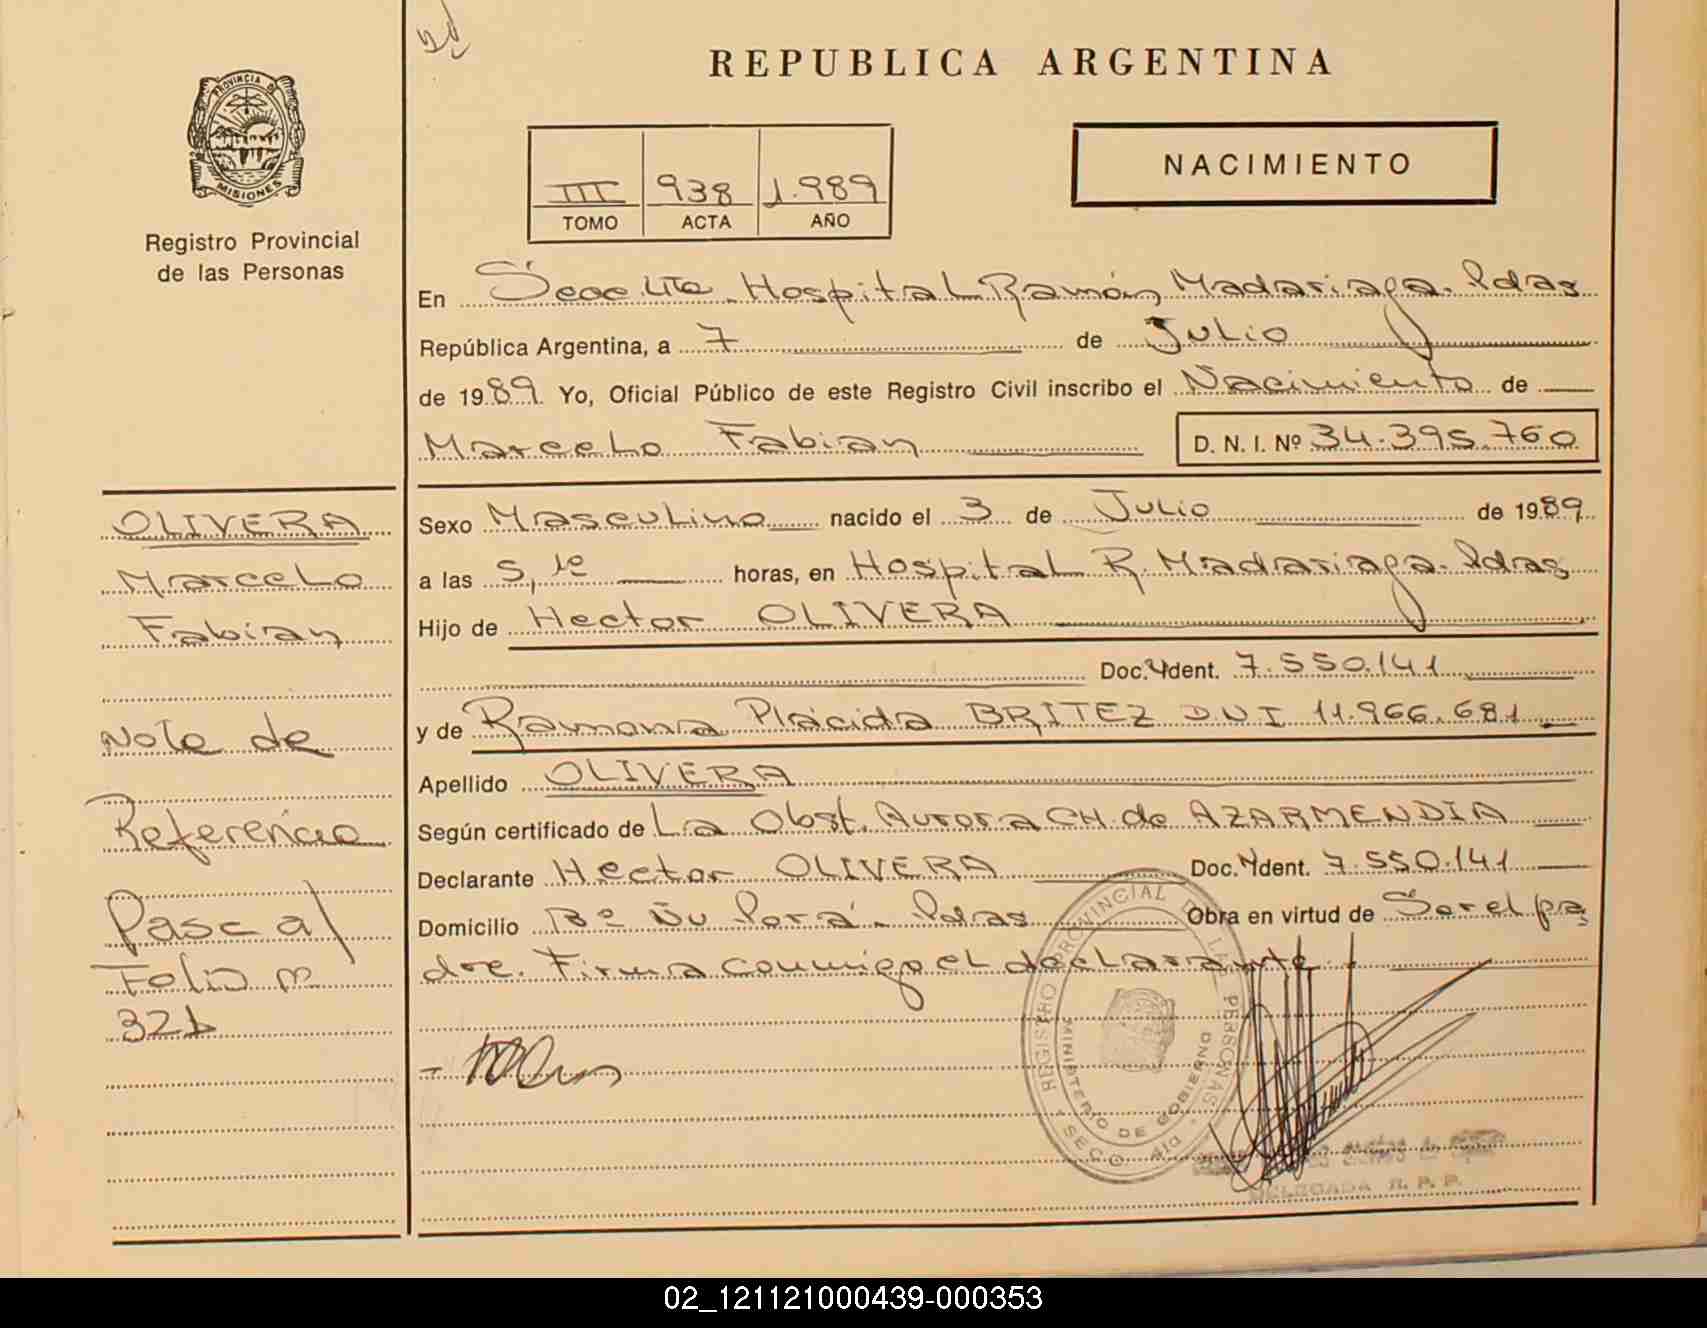 REPUBLICA ARGENTINA
PROVINCIA DE
MISIONES
Registro Provincial
de las Personas
III 938 1.989
TOMO ACTA AÑO
NACIMIENTO
En Hospital Ramón Madariaga. Pdas
República Argentina, a 7 de Julio
de 1989 Yo, Oficial Público de este Registro Civil inscribo el Nacimiento de
Marcelo Fabian D. N. I. Nº 34.395.760
OLIVERA
Marcelo
Fabian
Nota de
Referencia
Pascal
Folio
321
Sexo Masculino nacido el 3 de Julio de 1989
a las 5,10 horas, en Hospital R. Madariaga. Pdas
Hijo de Hector OLIVERA
Doc. Ydent. 7.550.141
y de Ramona Placida BRITEZ DNI 11.966.681
Apellido OLIVERA
Según certificado de La Obst. Aurora CH. de AZARMENDIA
Declarante Hector OLIVERA Doc. Ydent. 7.550.141
Domicilio Bº Ñu Porá. Pdas Obra en virtud de Ser el pa
dre. Firma conmigo el declarante
REGISTRO PROVINCIAL DE LAS PERSONAS
MINISTERIO DE GOBIERNO
DELEGADA R. P. P.
02_121121000439-000353